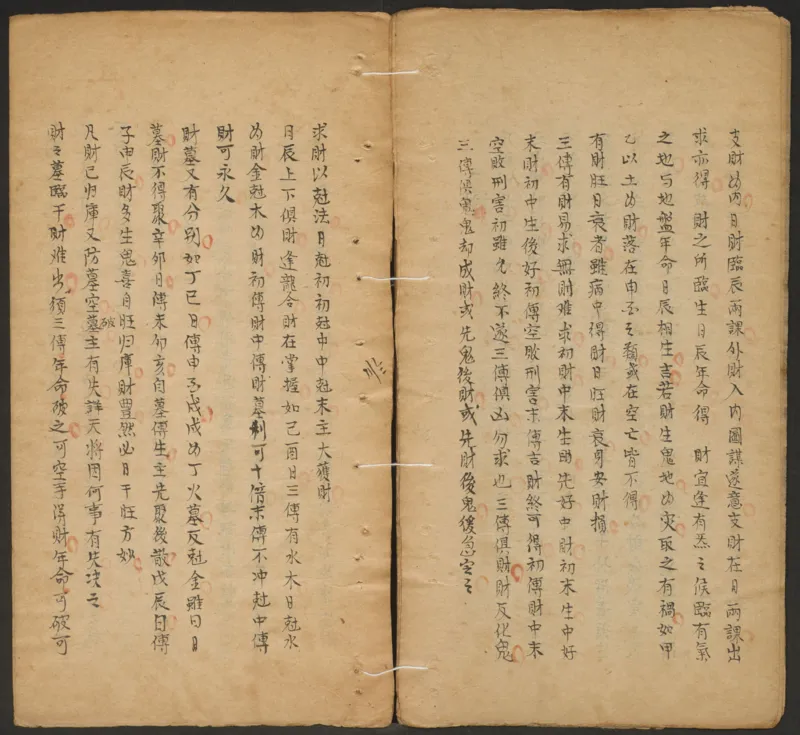 支財为內日財臨辰兩課外財入內圖謀遂意支財在日兩課出
求亦得財之所臨生日辰年命得財宜逢有炁之候臨有氣
之地与地盤年命日辰相生言若財生鬼地为灾取之有禍如甲
乙以土为財落在申酉之類或在空亡皆不得
有財旺日衰者雖病中得財日旺財衰身安財損
三傳有財易求無則难求初財中末生助先好中財初末生中好
末財初中生後好初傳空敗刑害末傳吉財終可得初傳財中末
空敗刑害初雖允終不遂三傳俱凶勿求也三傳俱財財反化鬼
三傳俱鬼鬼却成財或先鬼後財或先財後鬼後忽空之
求財以尅法日尅初初尅中中尅末主大獲財
日辰上下俱財逢龍合財在掌握如己酉日三傳有水木日尅水
为財金尅木为財初傳財中傳財墓利可十倍末傳不冲尅中傳
財可永久
財墓又有分別如丁巳日傳申酉戌戌为丁火墓反尅金雖曰日
墓財不得聚辛卯日傳未卯亥自墓傳生主先聚後散戊辰日傳
子申辰財多生鬼喜月旺归庫財豊然必日干旺方妙
凡財已归庫又防墓空墓破主有失詳天將因何事有失决之
財之墓臨干財难出須三傳年命破之可空手得財年命可破可